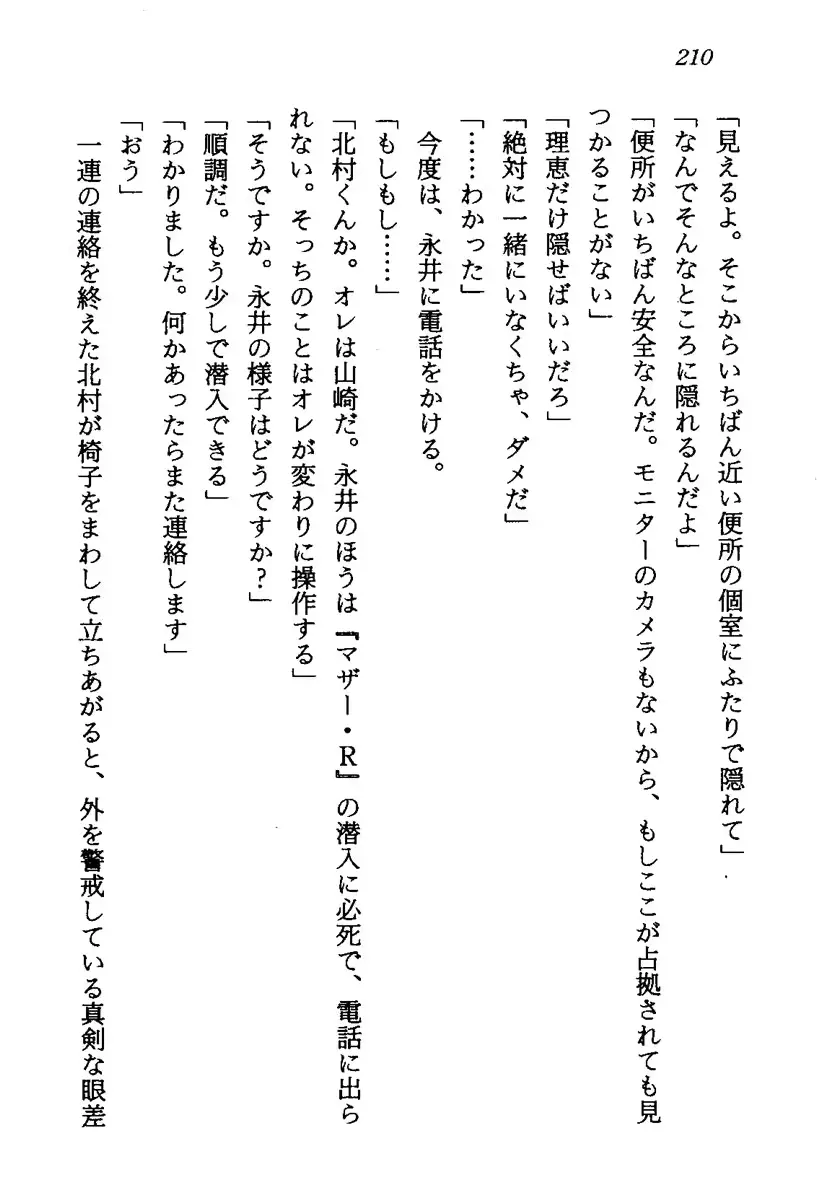 210
「見えるよ。そこからいちばん近い便所の個室にふたりで隠れて」
「なんでそんなところに隠れるんだよ」
「便所がいちばん安全なんだ。モニターのカメラもないから、もしここが占拠されても見
つかることがない」
「理恵だけ隠せばいいだろ」
「絶対に一緒にいなくちゃ、ダメだ」
「……わかった」
今度は、永井に電話をかける。
「もしもし……」
「北村くんか。オレは山崎だ。永井のほうは『マザー・R』の潜入に必死で、電話に出ら
れない。そっちのことはオレが変わりに操作する」
「そうですか。永井の様子はどうですか?」
「順調だ。もう少しで潜入できる」
「わかりました。何かあったらまた連絡します」
「おう」
一連の連絡を終えた北村が椅子をまわして立ちあがると、外を警戒している真剣な眼差